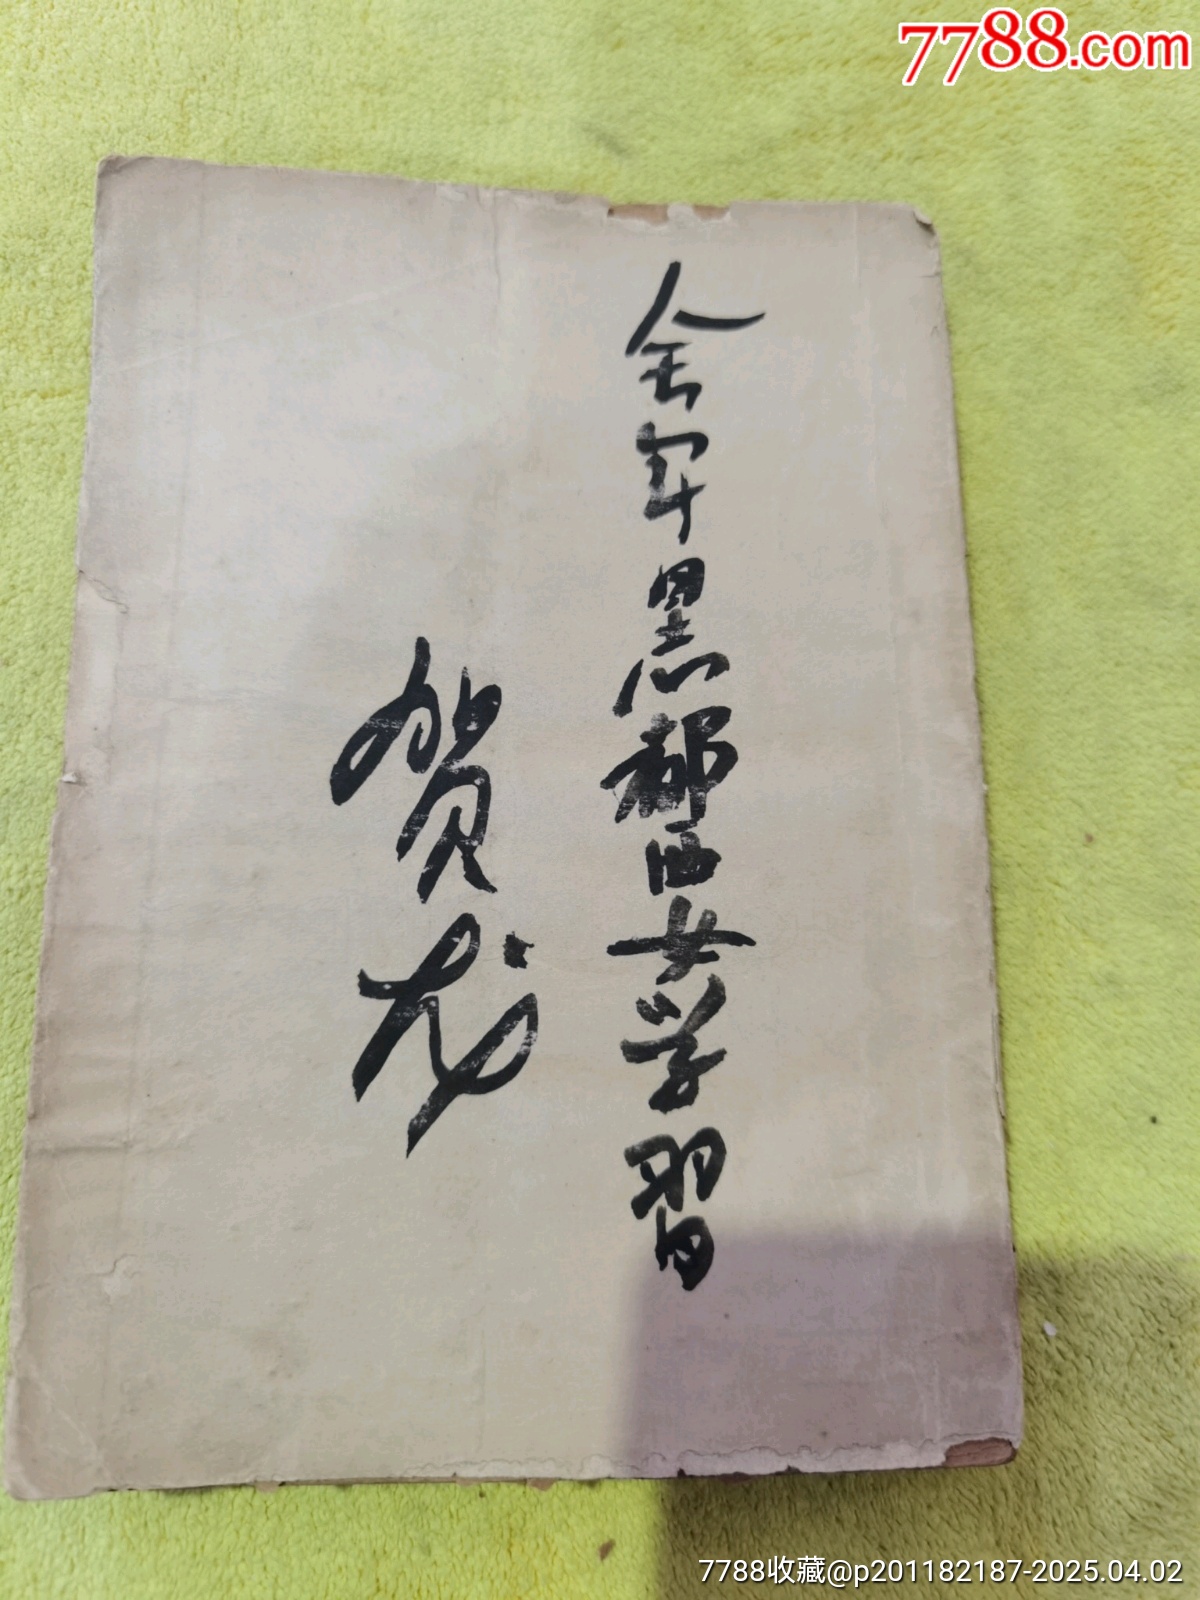 7788.com
全军都要学習
贺龙
7788收藏@p201182187-2025.04.02